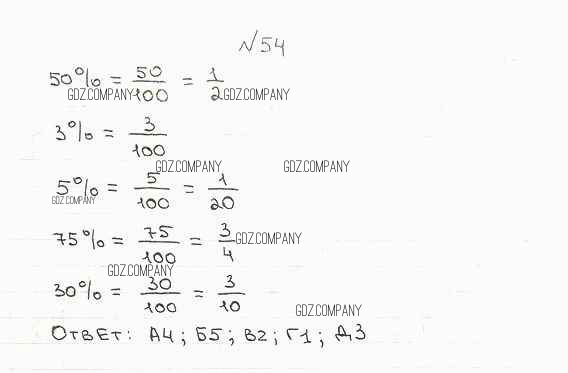 №54
50% = 50/100 = 1/2
GDZ.COMPANY GDZ.COMPANY
3% = 3/100
GDZ.COMPANY GDZ.COMPANY
5% = 5/100 = 1/20
GDZ.COMPANY
75% = 75/100 = 3/4
GDZ.COMPANY
GDZ.COMPANY
30% = 30/100 = 3/10
GDZ.COMPANY
ОТВЕТ: А4; Б5; В2; Г1; Д3